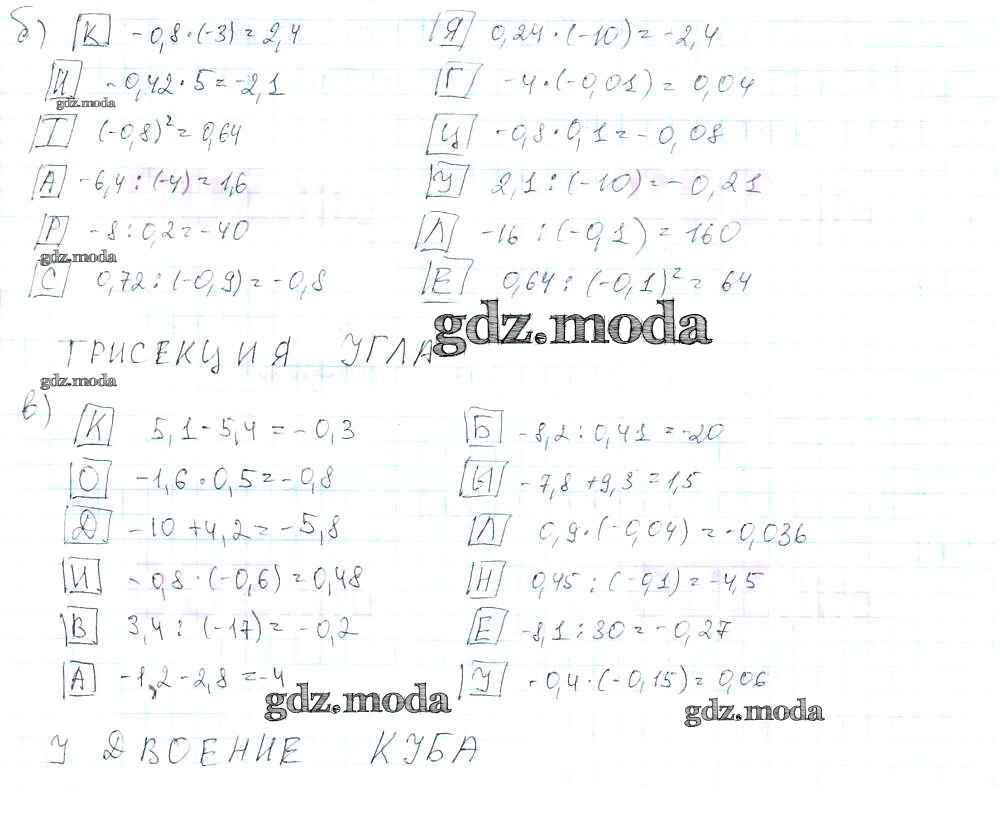 б) К -0,8·(-3)=2,4 Я 0,24·(-10)=-2,4
И -0,42·5=-2,1 Г -4·(-0,01)=0,04
gdz.moda
Т (-0,8)²=0,64 Ц -0,8·0,1=-0,08
А -6,4:(-4)=1,6 У 2,1:(-10)=-0,21
Р -8:0,2=-40 Л -16:(-0,1)=160
gdz.moda
С 0,72:(-0,9)=-0,8 Е 0,64:(-0,1)²=64
gdz.moda
ТРИСЕКЦИЯ УГЛА
gdz.moda
в) К 5,1-5,4=-0,3 Б -8,2:0,41=-20
О -1,6·0,5=-0,8 Ы -7,8+9,3=1,5
Д -10+4,2=-5,8 Л 0,9·(-0,04)=-0,036
И -0,8·(-0,6)=0,48 Н 0,45:(-0,1)=-4,5
В 3,4:(-17)=-0,2 Е -8,1:30=-0,27
А -1,2-2,8=-4 У -0,4·(-0,15)=0,06
gdz.moda gdz.moda
УДВОЕНИЕ КУБА